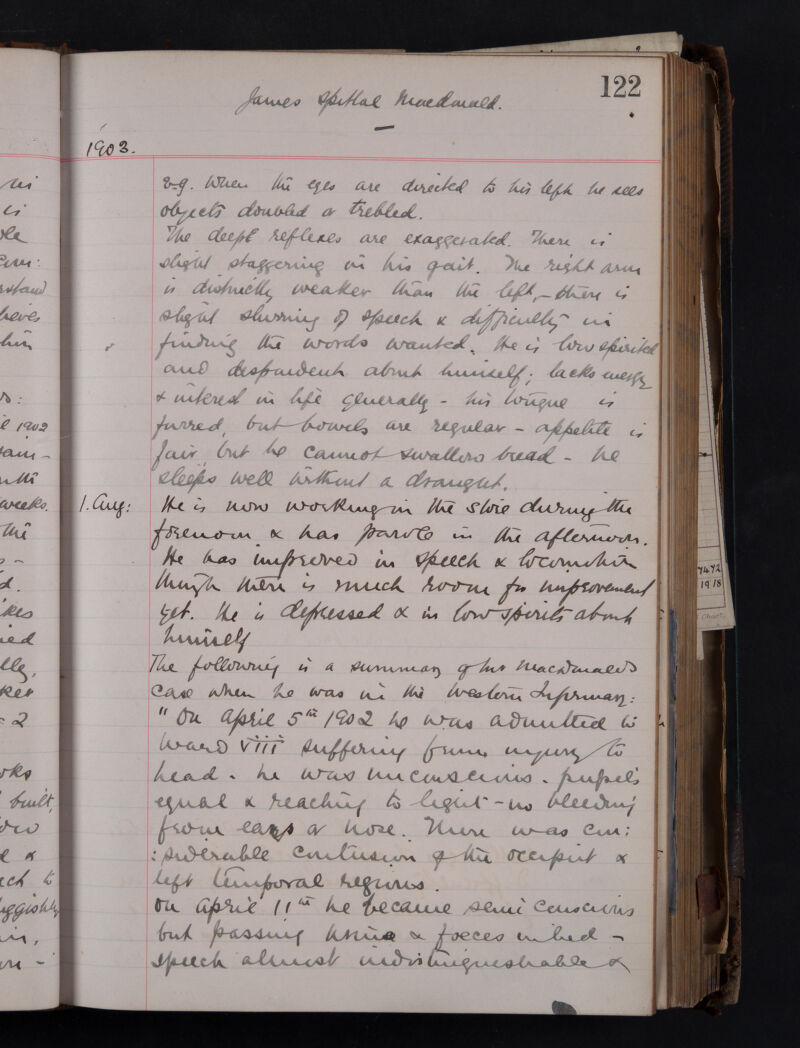 122
James Spittal Macdonald.
1903.
e.g. When the eyes are directed to his left he sees
objects doubled or trebled.
The deep reflexes are exaggerated. There is
slight staggering in his gait. The right arm
is distinctly weaker than the left, - there is
slight slurring of speech & difficulty in
finding the words wanted. He is low spirited
and despondent about himself; lacks energy
& interest in life generally - his tongue is
furred, but bowels are regular - appetite is
fair but he cannot swallow bread - he
sleeps well without a draught.
1. Aug: He is now working in the store during the
forenoon & has parole in the afternoon.
He has improved in speech & locomotion
though there is much room for improvement
yet. He is depressed & in low spirits about
himself
The following is a summary of Mr Macdonald's
case when he was in the Western Infirmary:
" On April 5th 1902 he was admitted to
Ward VIII suffering from injury to
head. he was unconscious. pupils
equal & reacting to light - no bleeding
from ears or nose. There was con:
:siderable contusion of the occiput &
left temporal regions.
On April 11th he became semi conscious
but passing urine & foeces in bed -
speech almost indistinguishable &
7472
1918